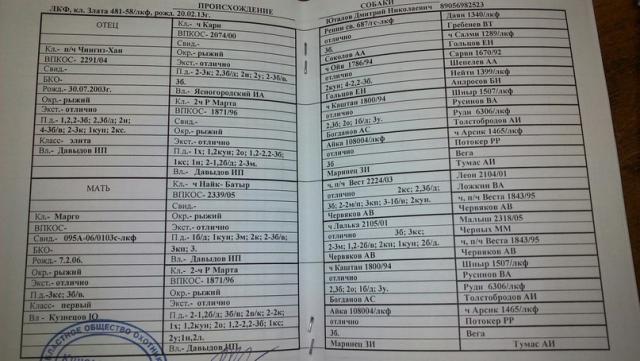 ПРОИСХОЖДЕНИЕ
ЛКФ, кл. Злата 481-58/лкф, рожд. 20.02.13г.
ОТЕЦ
Кл.- п/ч Чингиз-Хан
ВПКОС- 2291/04
Свид.-
БКО-
Рожд.- 30.07.2003г.
Окр.- рыжий
Экст.- отлично
П.д.- 1,2,2-3б; 2,3б/д; 2н;
4-3б/в; 2-3к; 1кун; 2кс.
Класс- элита
Вл.- Давыдов ИП
МАТЬ
Кл.- Марго
ВПКОС-
Свид.- 095А-06/0103с-лкф
БКО-
Рожд.- 7.2.06.
Окр.- рыжий
Экст.- отлично
П.д.-3кс; 3б/в.
Класс- первый
Вл - Кузнецов Ю
Кл.- ч Кари
ВПКОС- 2074/00
Свид.-
Окр.- рыжий
Экст.- отлично
П.д.- 2-3к; 2,3б/д; 2н; 2у; 2-3б/в.
3б.
Вл.- Ясногородский ИА
Кл.- 2-ч Р Марта
ВПКОС- 1871/96
Свид.-
Окр.- рыжий
Экст.- отлично
П.д.- 1х; 1,2кун; 2о; 1,2-2,2-3б;
1кс; 1н; 2-1,2б/д; 2-3м.
Вл.- Давыдов ИП
Кл.- ч Найк- Батыр
ВПКОС- 2339/05
Свид.-
Окр.- рыжий
Экст.- отлично
П.д.- 1б/д; 1кун; 3м; 2к; 2-3б/в;
3кн; 3.
Вл.- Давыдов ИП
Кл.- 2-ч Р Марта
ВПКОС- 1871/96
Окр.- рыжий
Экст.- отлично
П.д.- 2-1,2б/д; 3б/в; 2в/к; 2-2к;
1х; 1,2кун; 2о; 1,2-2,2-3б; 1кс;
2у;1н,2л.
Вл.- Давыдов ИП
СОБАКИ
Юталов Дмитрий Николаевич 89056982523
Ренни св. 687/гс-лкф
отлично
3б.
Соколов АА
ч Ойя 1786/94
отлично
2кун; 4-2,2-3б.
Гольцов ЕН
ч Каштан 1800/94
отлично
2,3б; 2о; 1б/д; 3у.
Богданов АС
Айка 108004/лкф
отлично
3б
Марянец ЗИ
ч, п/ч Вест 2224/03
отлично 2кс; 2,3б/д;
3б; 2-2м/п; 3кн; 3-1б/в; 2кун.
Червяков АВ
ч Лилька 2105/01
отлично 3б; 3кс;
2-3м; 1,2-2б/в; 2кн; 1кун; 2б/д.
Червяков АВ
ч Каштан 1800/94
отлично
2,3б; 2о; 1б/д; 3у.
Богданов АС
Айка 108004/лкф
отлично
3б
Марянец ЗИ
Даян 1340/лкф
Гребенев ВТ
ч Салми 1289/лкф
Гольцов ЕН
Сарян 1670/92
Шепелев АА
Нейти 1399/лкф
Андросов БН
Шныр 1507/лкф
Русинов ВА
Руди 6306/лкф
Толстобродов АИ
ч Арсик 1465/лкф
Потокер РР
Вега
Тумас АИ
Леон 2104/01
Ложкин ВА
ч, п/ч Веста 1843/95
Червяков АВ
Малыш 2318/05
Черных ММ
ч, п/ч Веста 1843/95
Червяков АВ
Шныр 1507/лкф
Русинов ВА
Руди 6306/лкф
Толстобродов АИ
ч Арсик 1465/лкф
Потокер РР
Вега
Тумас АИ
ОБЩЕСТВО ОХОТНИК